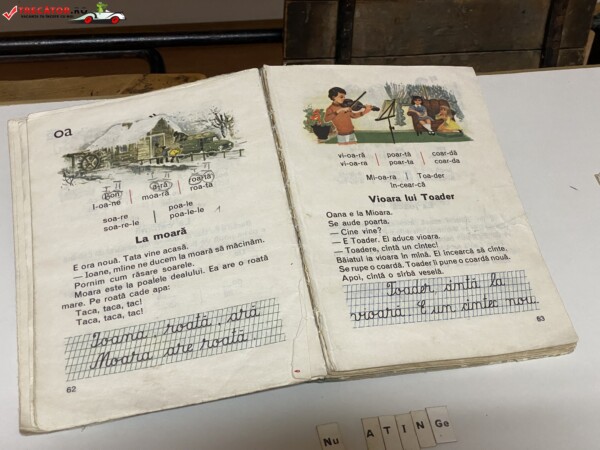 TRECATOR.RO
oa
I-oa-ne
moa-ră
roa-tă
soa-re
soa-re-le
poa-le
poa-le-le
La moară
E ora nouă. Tata vine acasă.
— Ioane, mîine ne ducem la moară să măcinăm.
Pornim cum răsare soarele.
Moara este la poalele dealului. Ea are o roată
mare. Pe roată cade apa:
Taca, taca, tac!
Taca, taca, tac!
Ioana roată ară
Moara are roată
62
vi-oa-ră
poar-tă
coar-dă
vi-oa-ra
poar-ta
coar-da
Mi-oa-ra
Toa-der
în-cear-că
Vioara lui Toader
Oana e la Mioara.
Se aude poarta.
— Cine vine?
— E Toader. El aduce vioara.
— Toadere, cîntă un cîntec!
Băiatul ia vioara în mînă. El încearcă să cînte.
Se rupe o coardă. Toader îi pune o coardă nouă.
Apoi, cîntă o sîrbă veselă.
Toader cîntă la
vioară. E un cîntec nou
63
Nu ATINGe